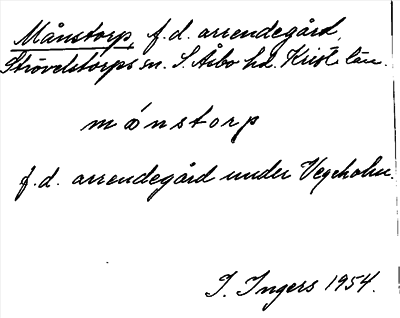 Månstorp, f.d. arrendegård,
Strövelstorps sn. S. Åsbo hd. Krist. län.
månstorp
f.d. arrendegård under Vegeholm.
I. Ingers 1954.